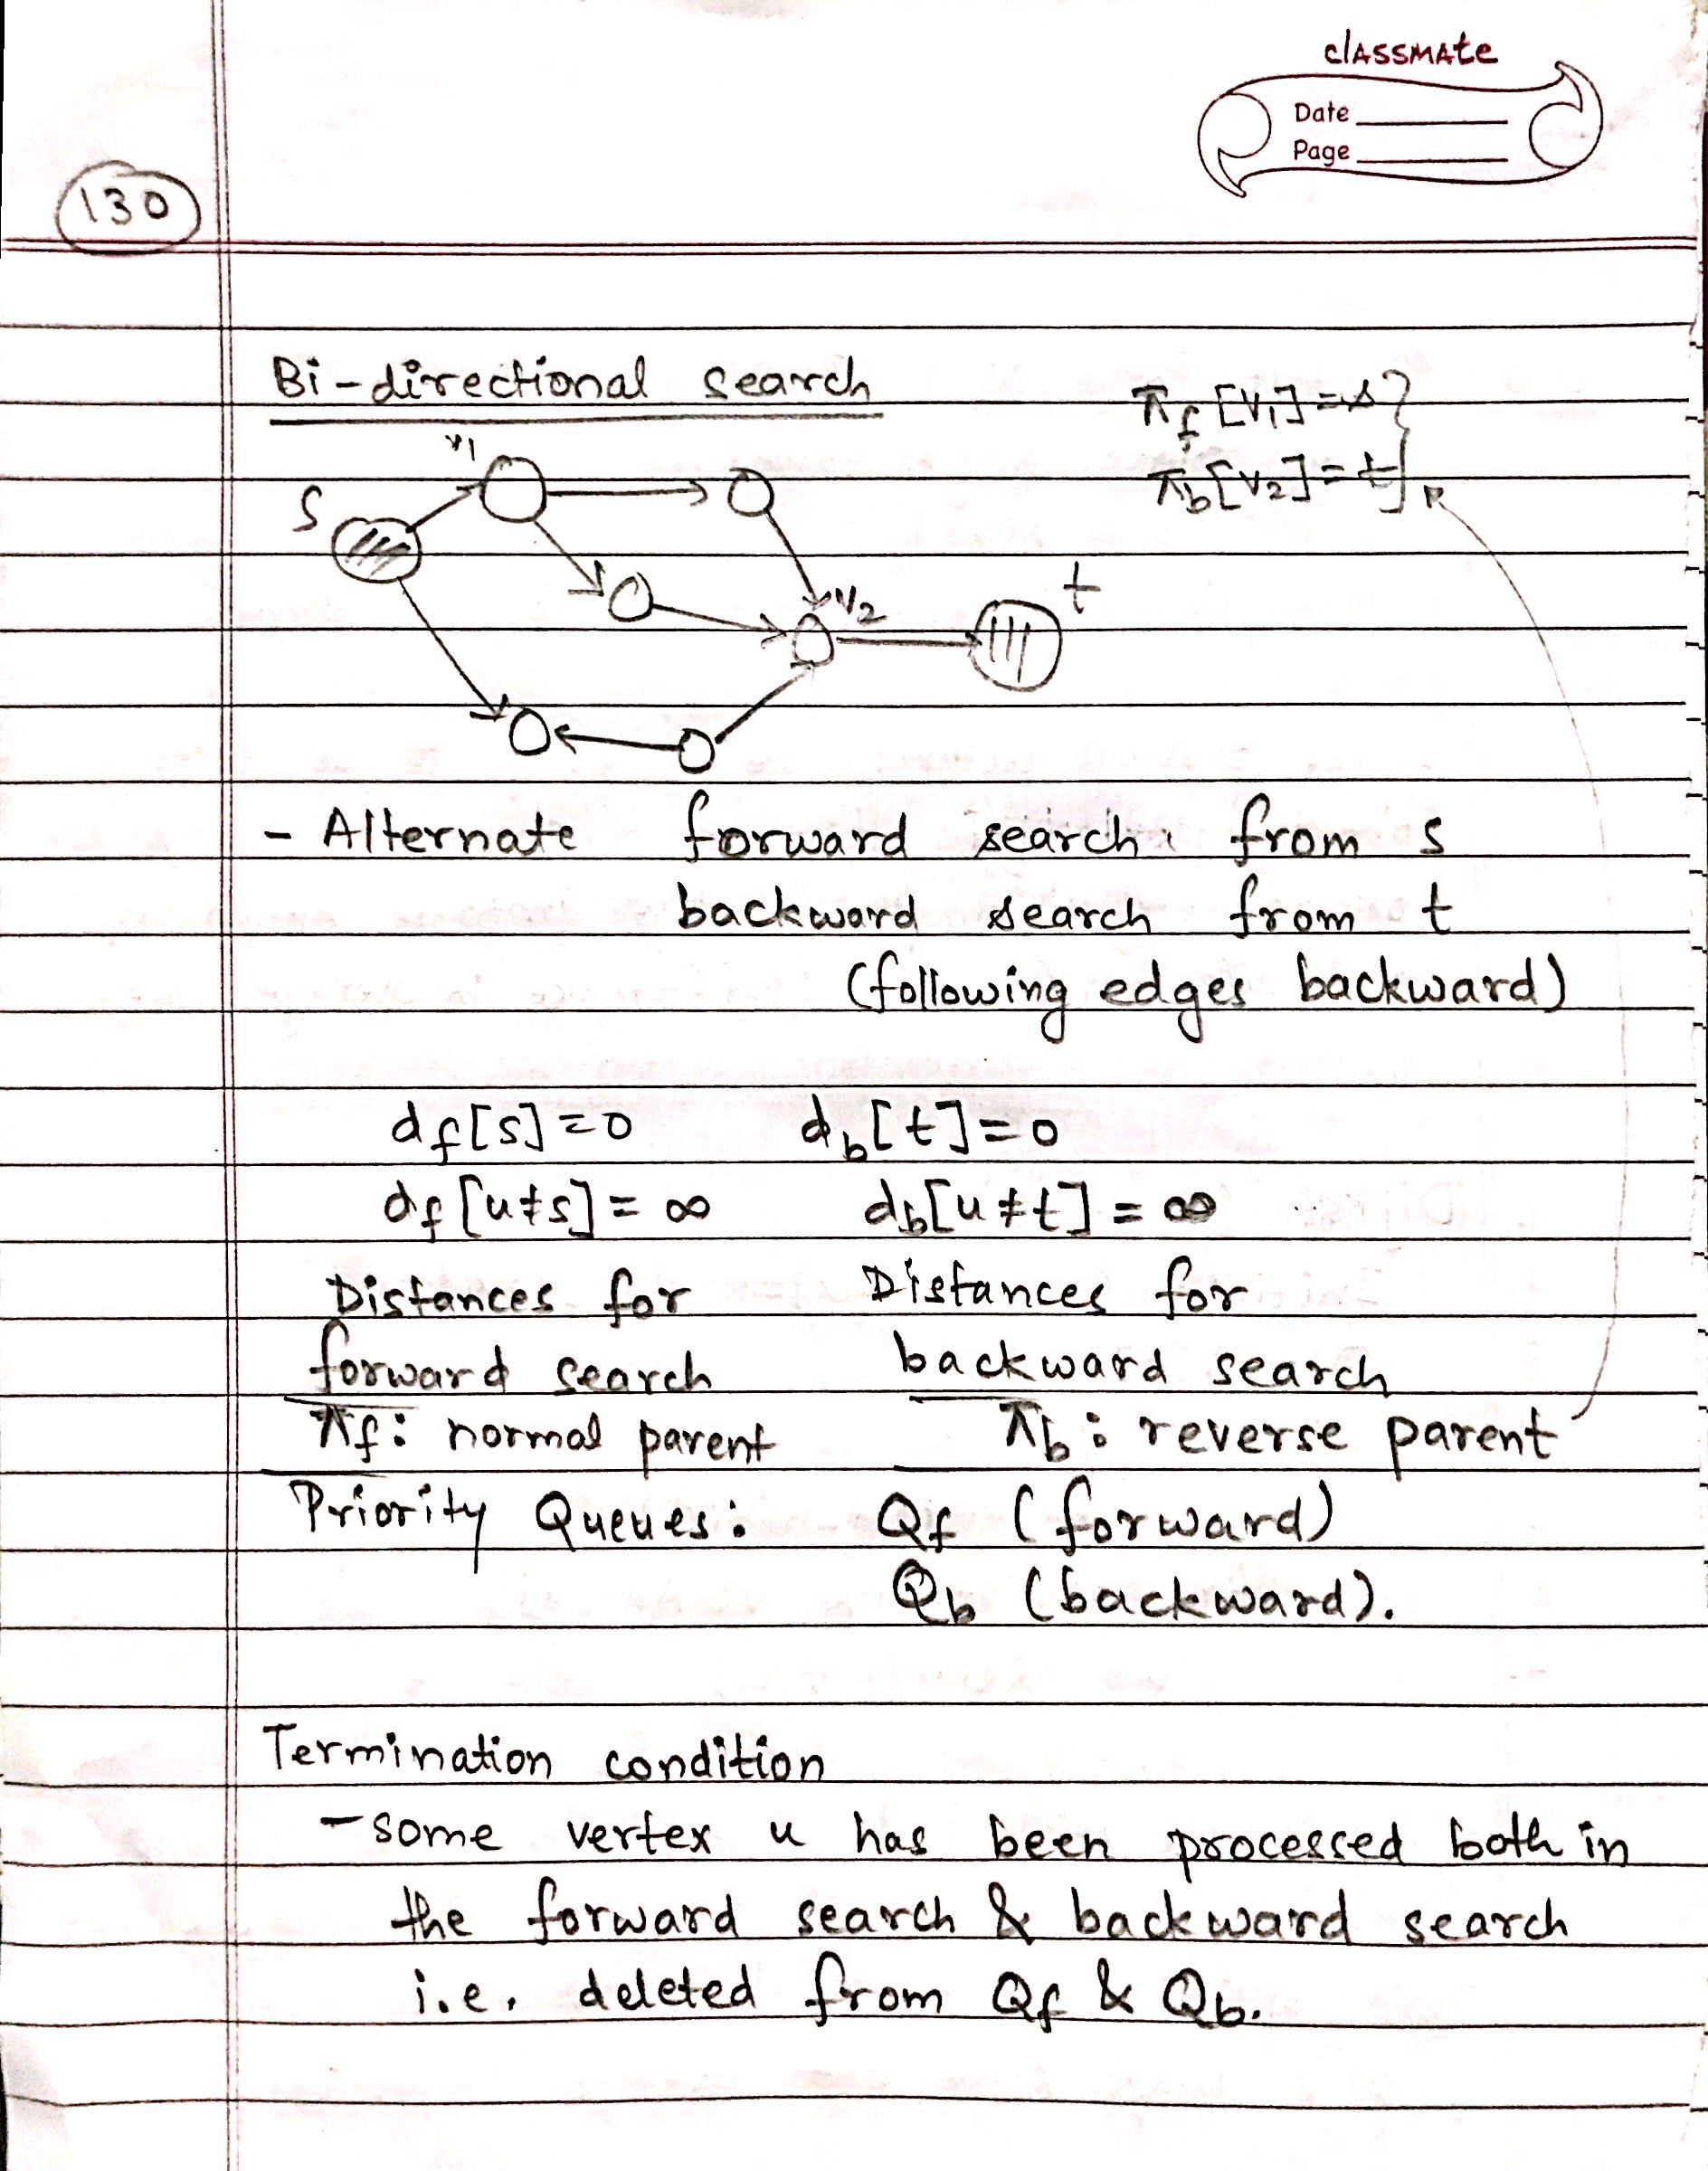 classmate
Date
Page
130
Bi-directional search
πf [v1] = s
πb [v2] = t
v1
s
t
v2
- Alternate forward search from s
backward search from t
(following edges backward)
df[s] = 0 db[t] = 0
df[u≠s] = ∞ db[u≠t] = ∞
Distances for Distances for
forward search backward search
πf: normal parent πb: reverse parent
Priority Queues: Qf (forward)
Qb (backward).
Termination condition
- some vertex u has been processed both in
the forward search & backward search
i.e. deleted from Qf & Qb.